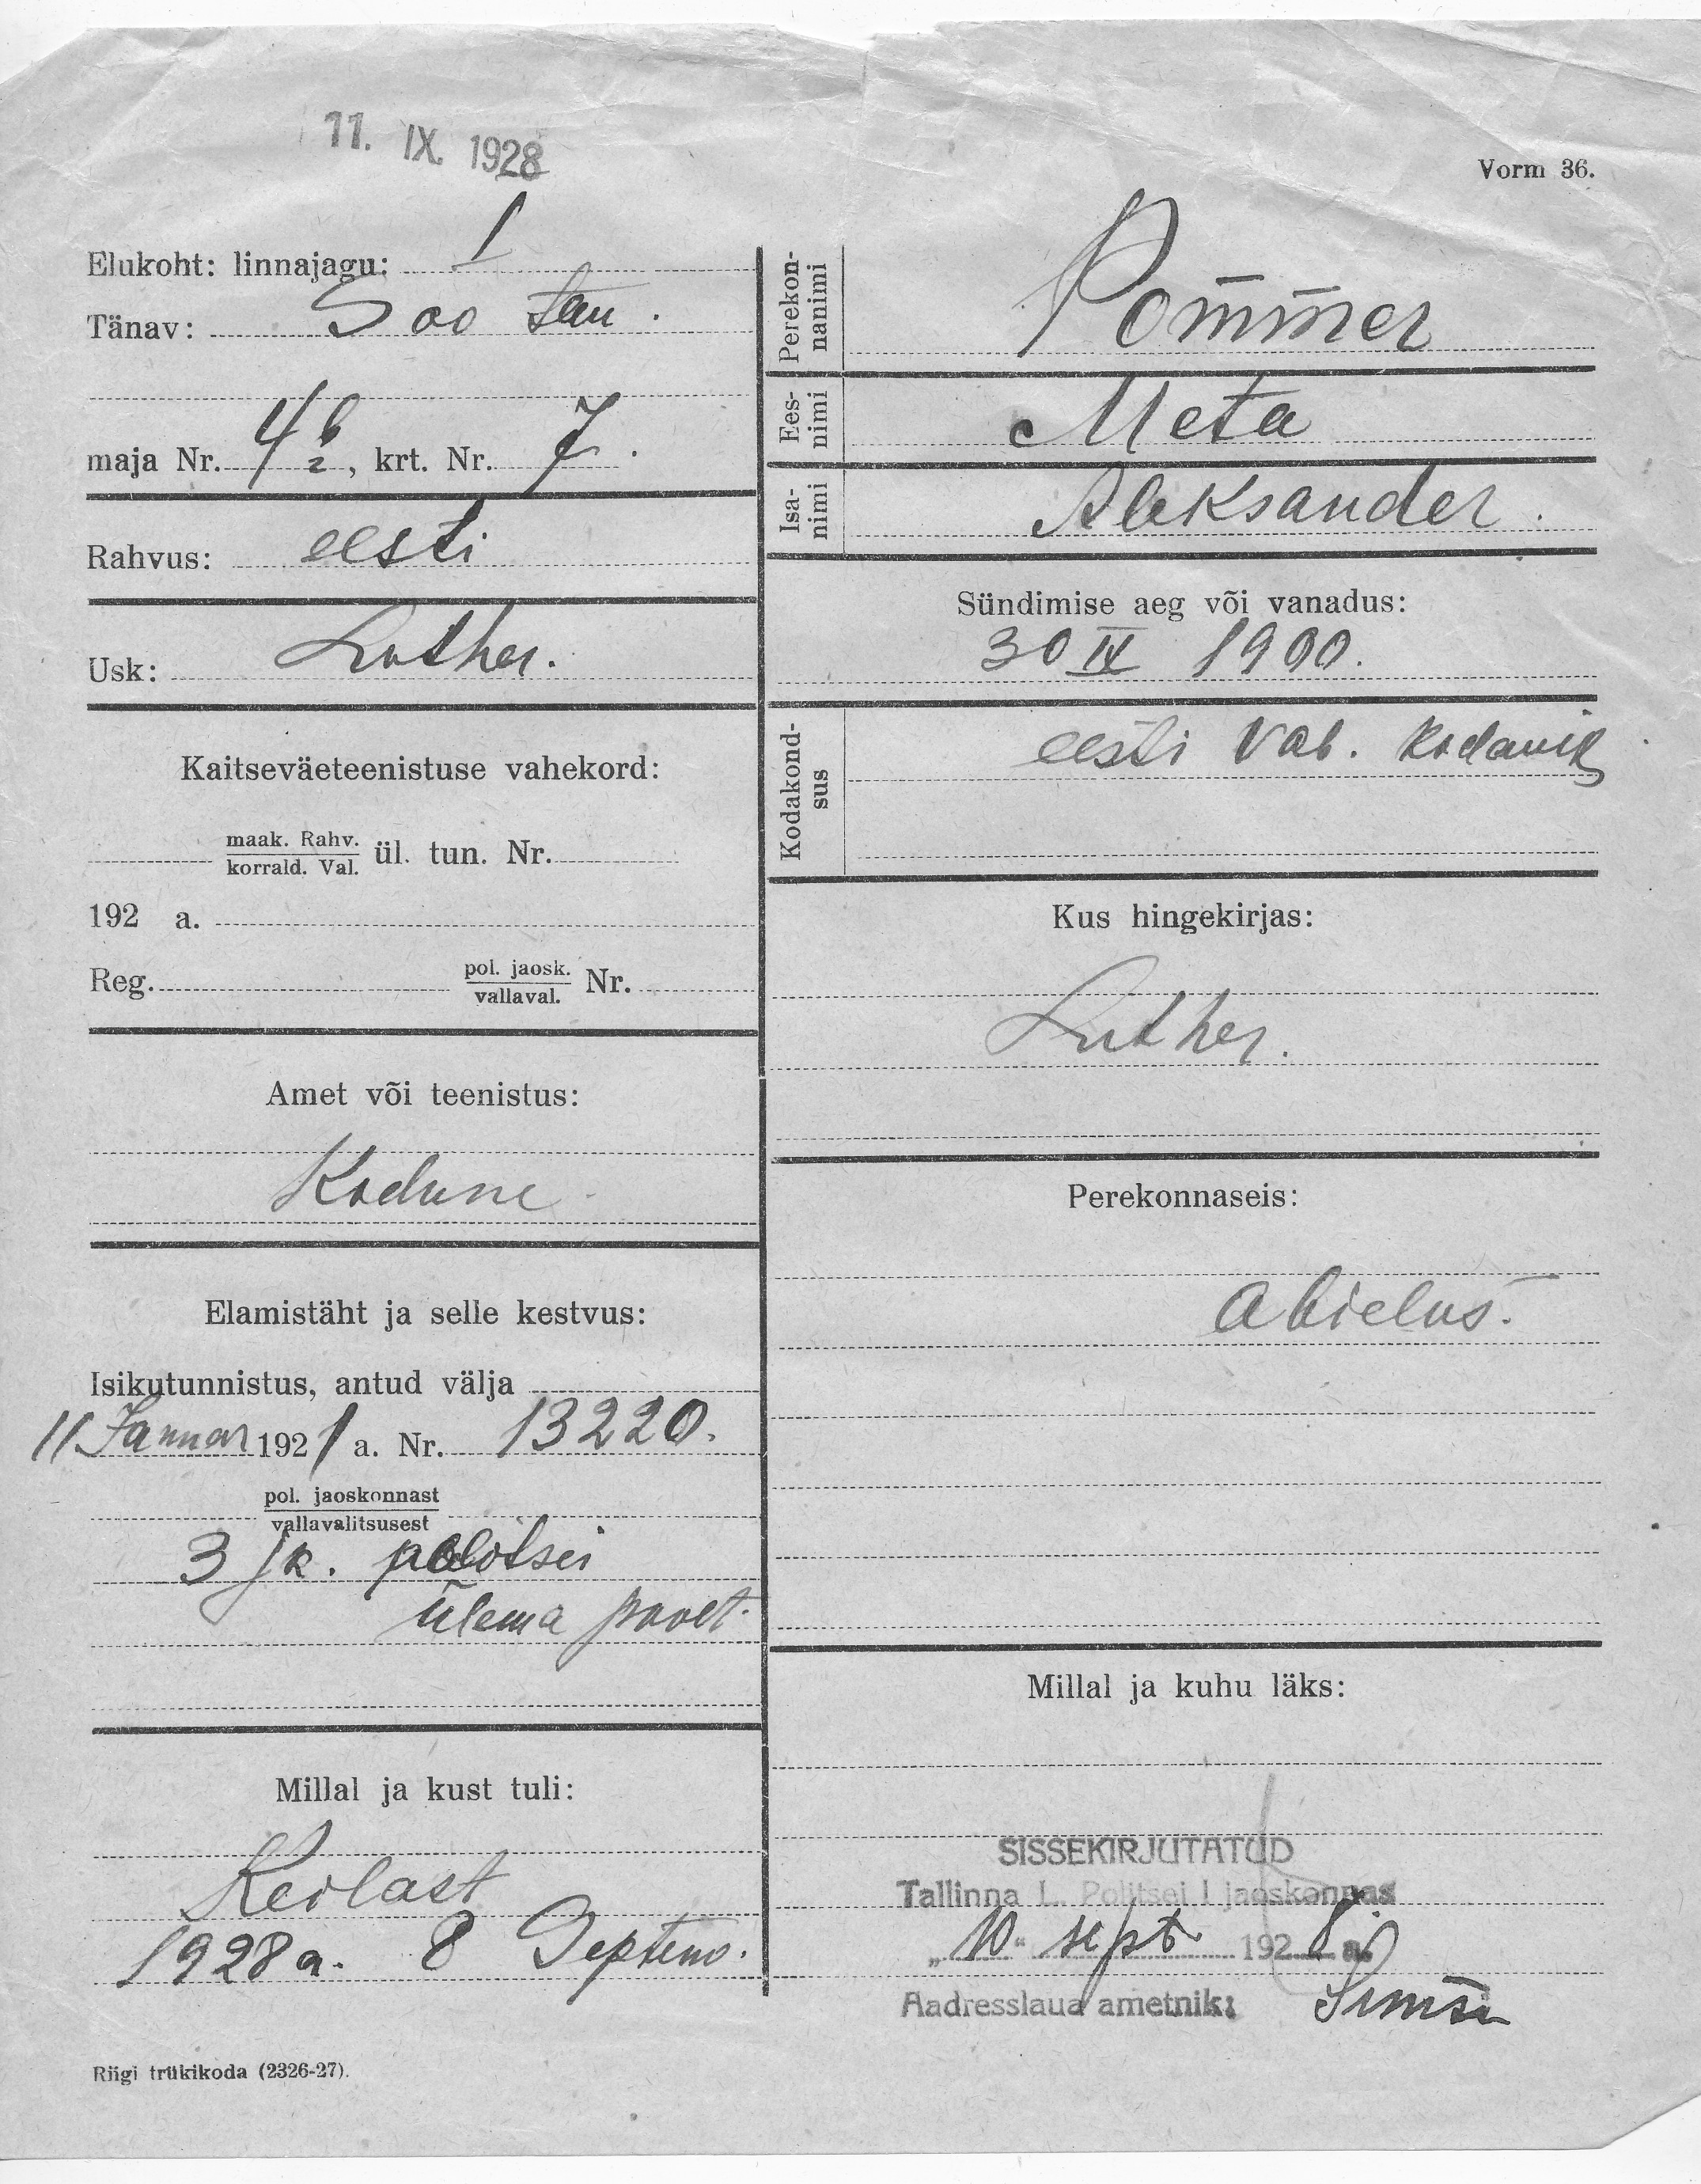 11. IX. 1928
Vorm 36.
Elukoht: linnajagu: 1
Tänav: Soo tän.
maja Nr. 4, krt. Nr. 7.
Rahvus: eesti
Usk: Luther.
Kaitseväeteenistuse vahekord:
maak. Rahv.
korrald. Val. ül. tun. Nr.
192 a.
Reg. pol. jaosk.
vallaval. Nr.
Amet või teenistus:
Kodune
Elamistäht ja selle kestvus:
Isikutunnistus, antud välja
11 Januar 1921 a. Nr. 13220.
pol. jaoskonnast
vallavalitsusest
3 jk. politsei
ülema poolt.
Millal ja kust tuli:
Keilast
1928 a. 8 Septemb.
Riigi trükikoda (2326-27).
Perekon-
nanimi
Pommer
Ees-
nimi
Meta
Isa-
nimi
Aleksander.
Sündimise aeg või vanadus:
30 IX 1900.
Kodakond-
sus
eesti Vab. kodanik
Kus hingekirjas:
Luther.
Perekonnaseis:
abielus.
Millal ja kuhu läks:
SISSEKIRJUTATUD
Tallinna L. Politsei I jaoskonnas
„10" sept 1928 a.
Aadresslaua ametnik: